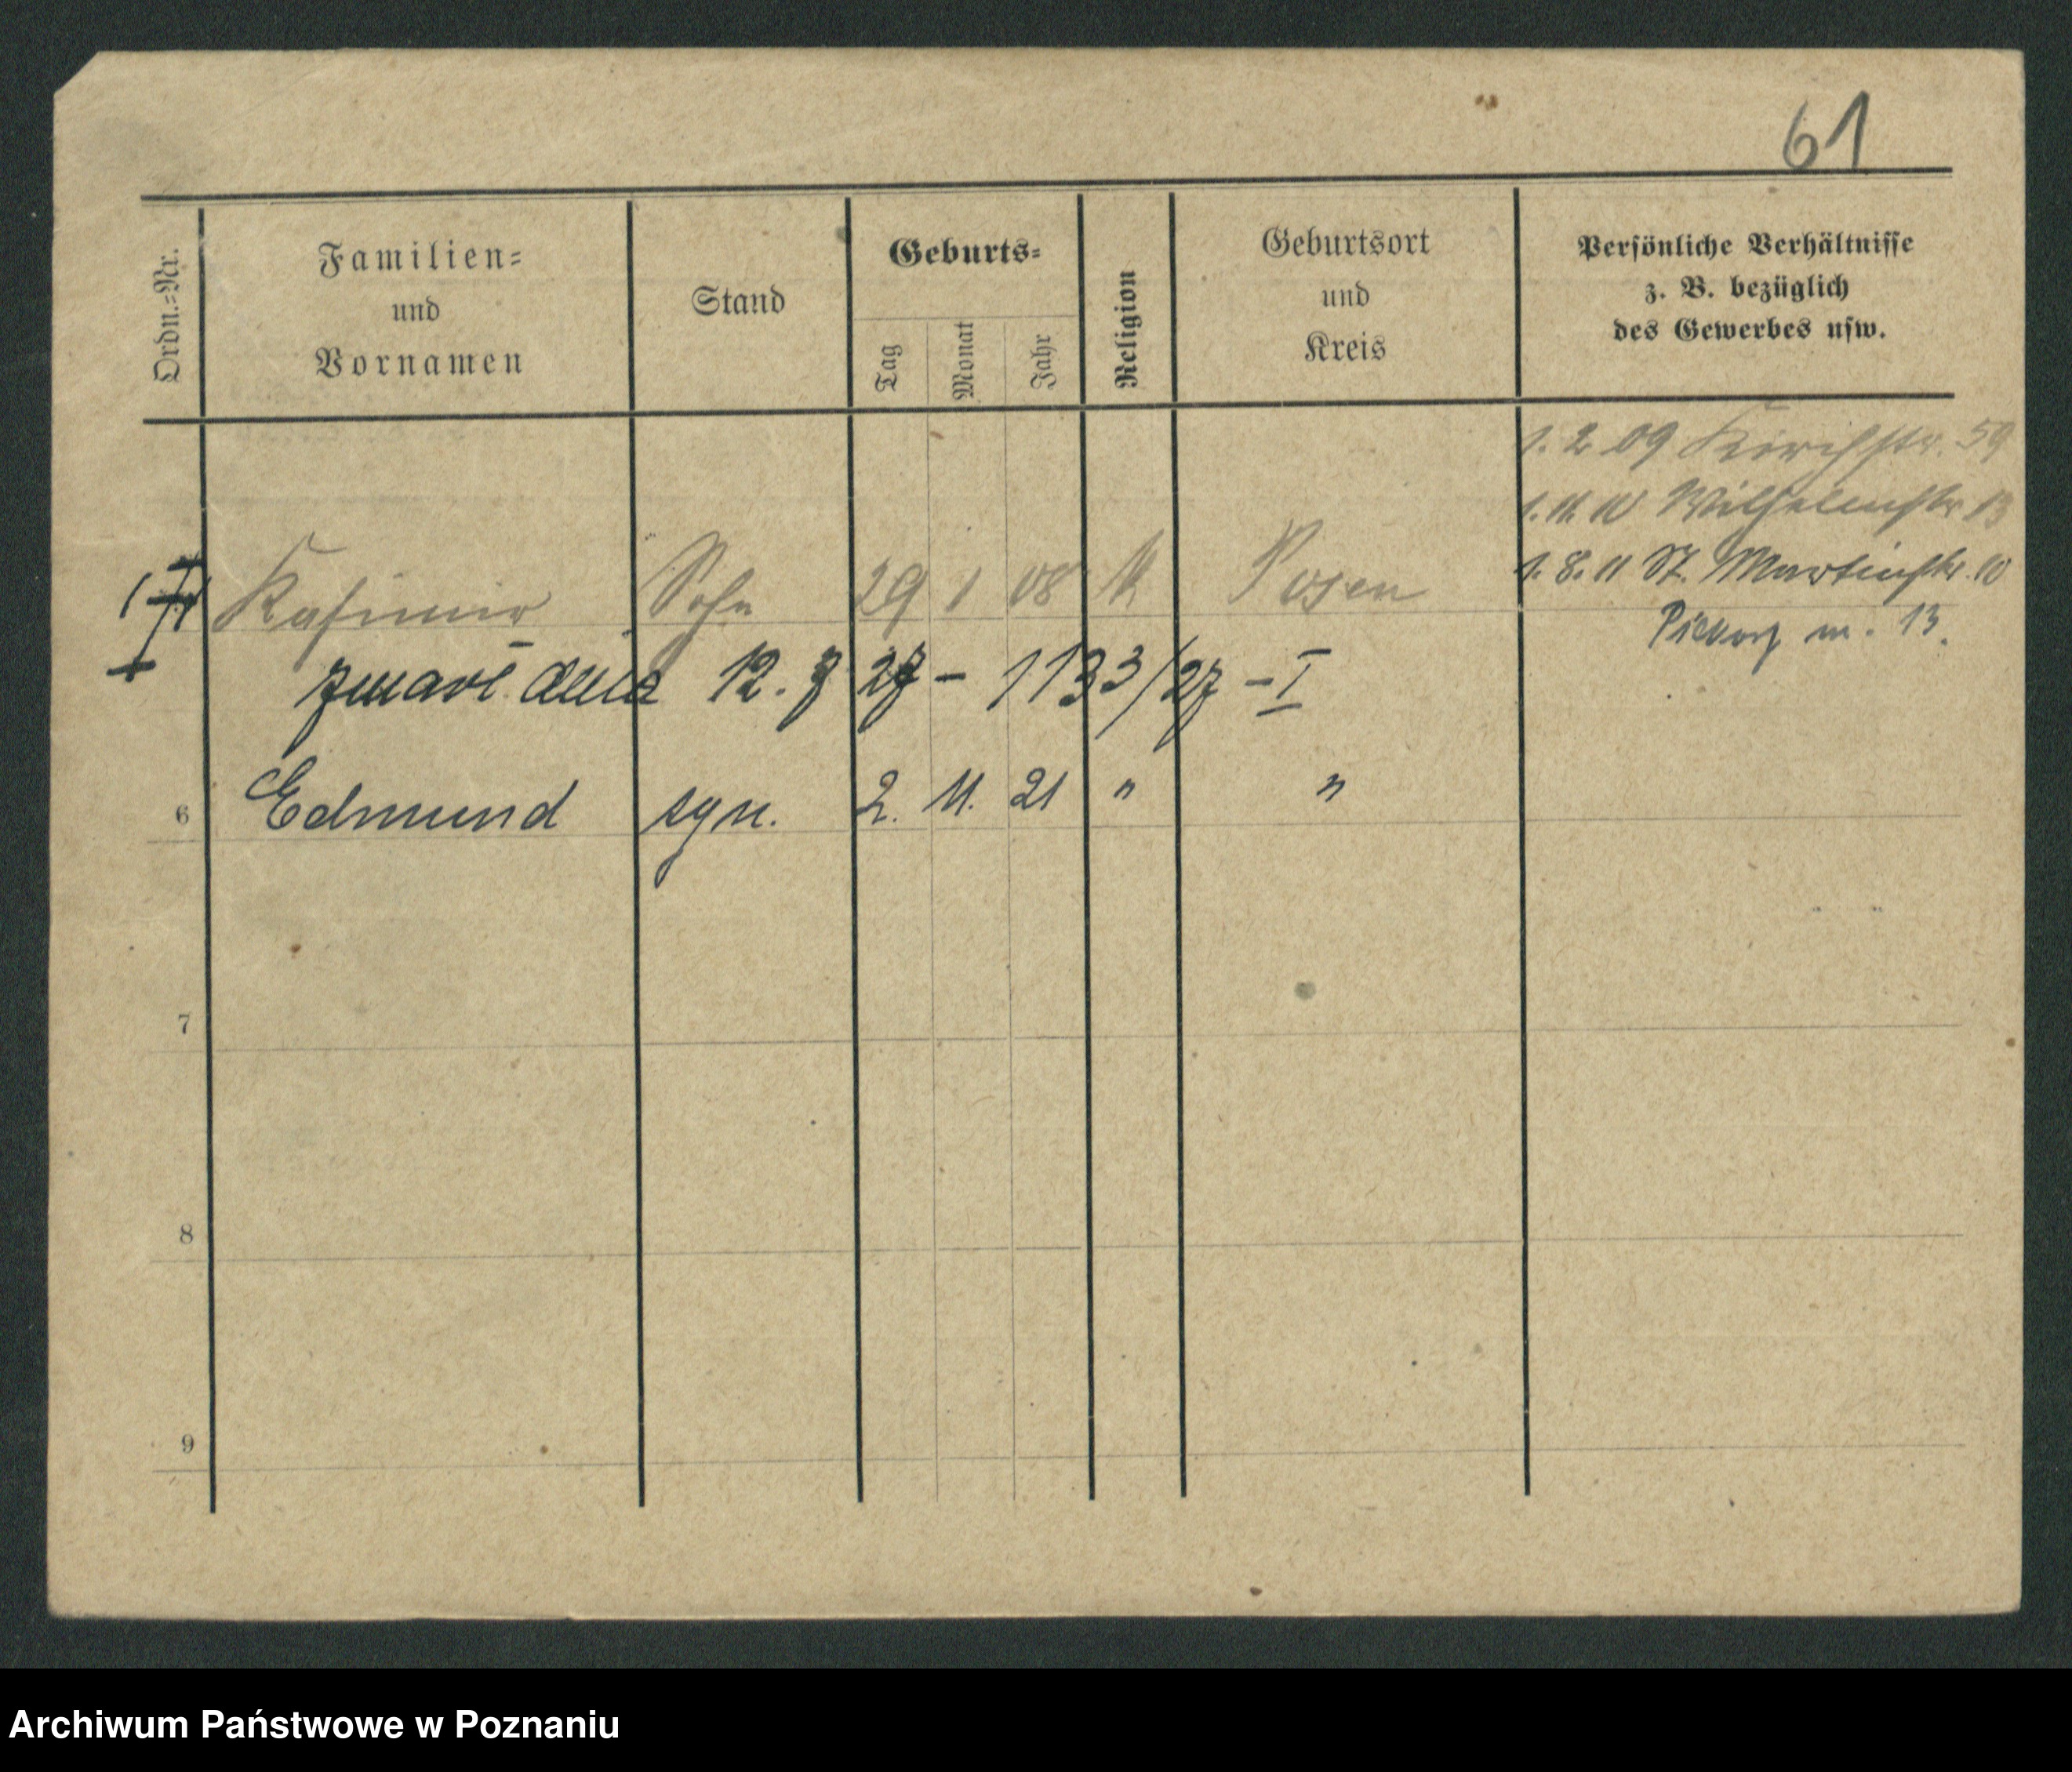 61
Ordn.=Nr.
Familien=
und
Vornamen
Stand
Geburts=
Tag
Monat
Jahr
Religion
Geburtsort
und
Kreis
Persönliche Verhältnisse
z. B. bezüglich
des Gewerbes usw.
1. 2 09 Kirchstr. 59
1. 11. 10 Wilhelmstr 13
1. 8. 11 St. Martinstr. 10
Kasimir Sohn 29 1 08 k Posen
Piekary m. 13.
zmarł dnia 12. 7 27 - 1133/27 - I
6 Edmund syn. 2. 11. 21 " "
7
8
9
Archiwum Państwowe w Poznaniu